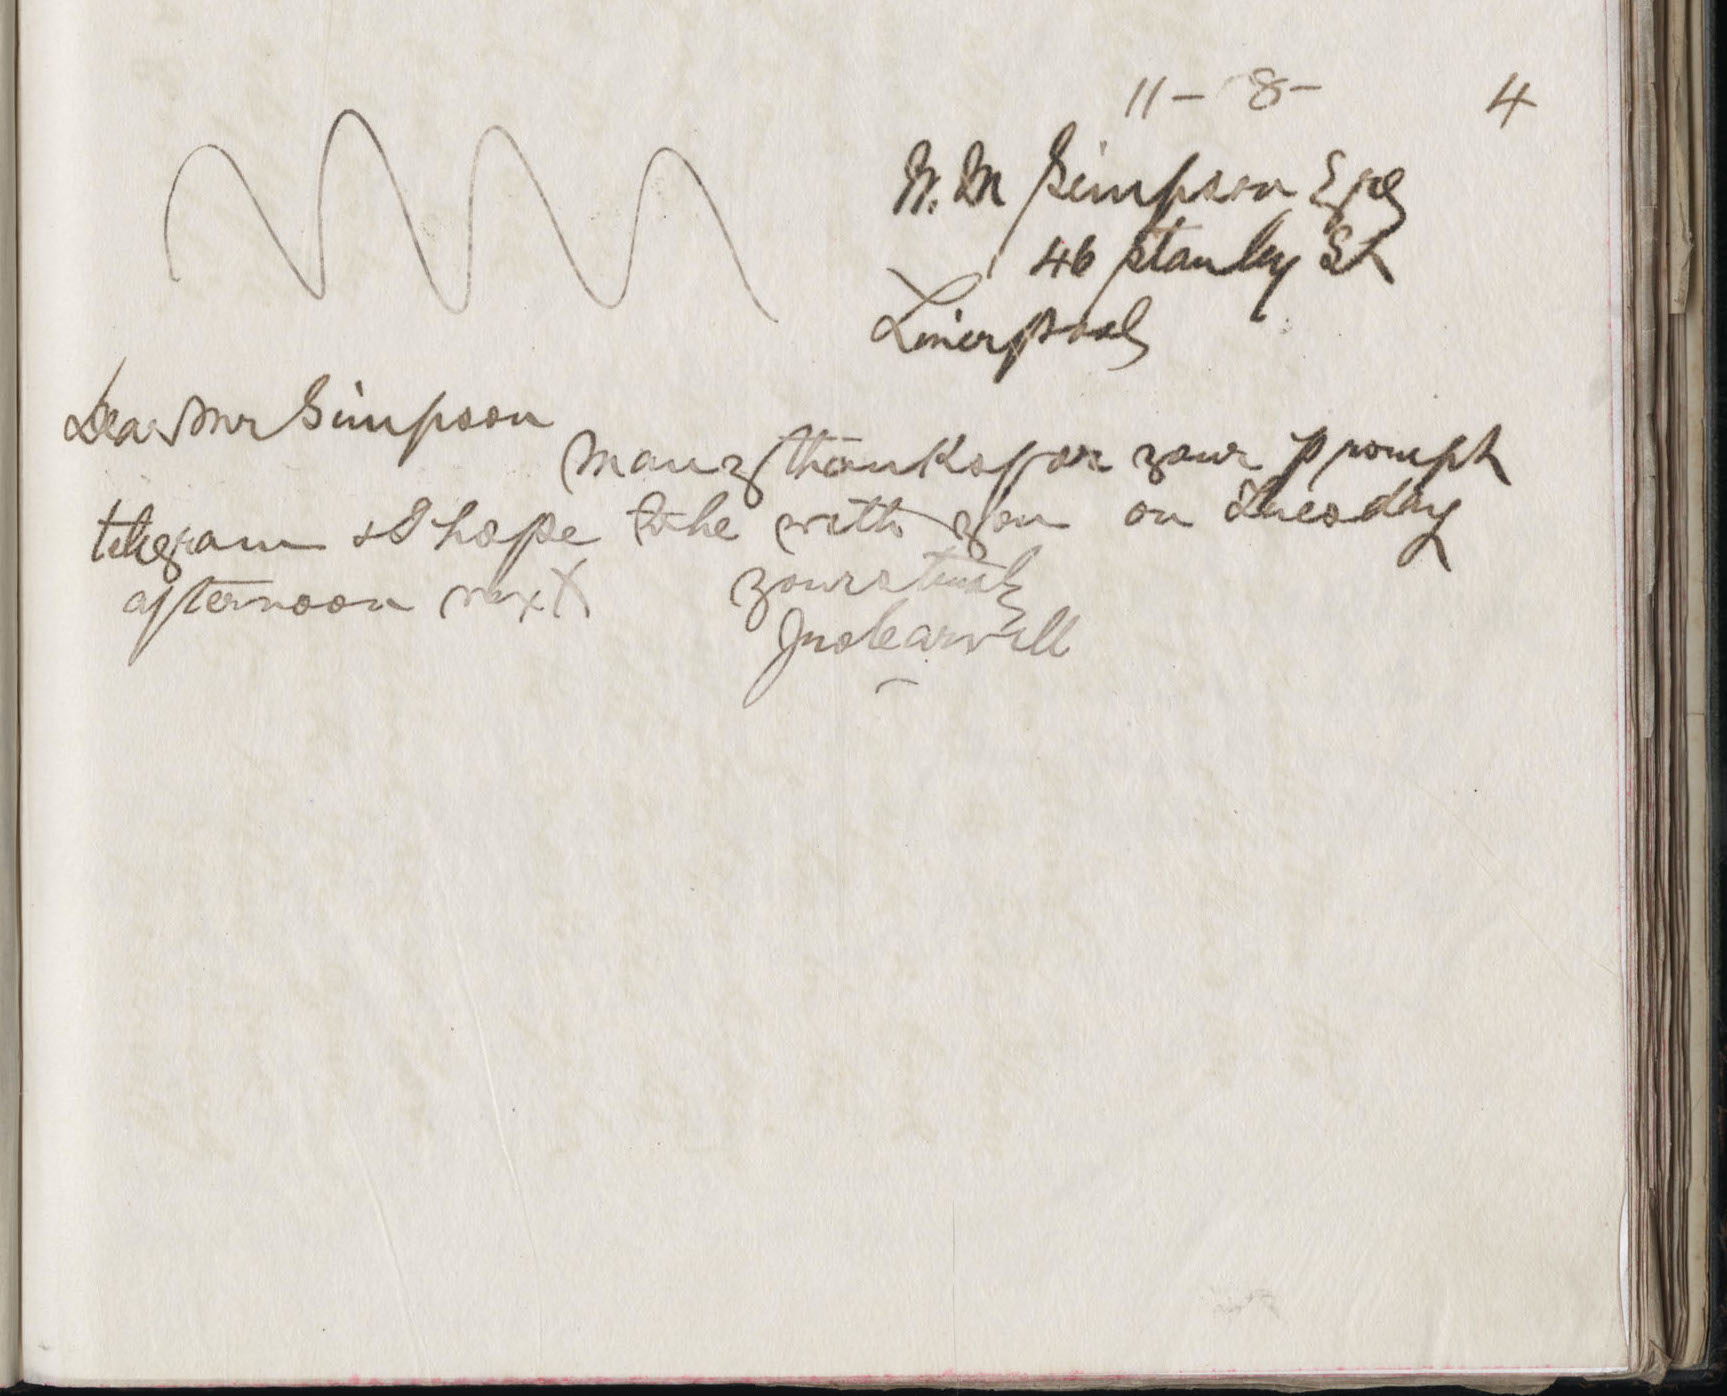 11 - 8 - 4
W. M Simpson Esq
46 Stanley St
Liverpool
Dear Mr Simpson
Many thanks for your prompt
telegram & I hope to be with you on Tuesday
afternoon next
yours truly
Jno Carvill